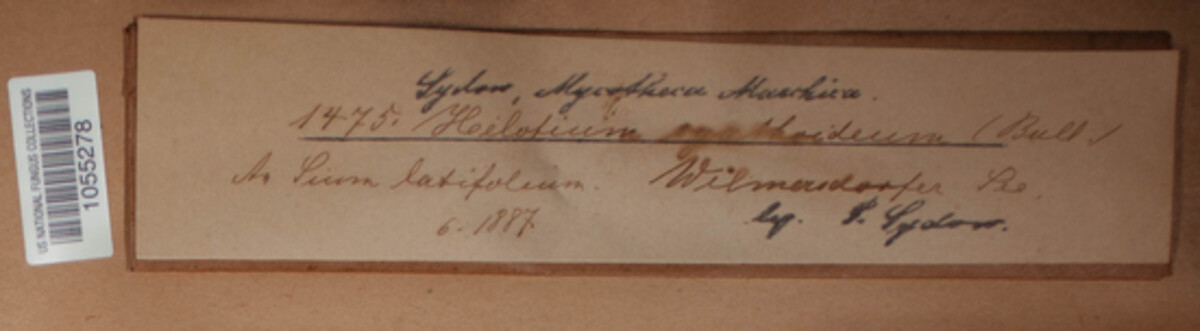 US NATIONAL FUNGUS COLLECTIONS
1055278
Sydow, Mycotheca Marchica.
1475. Helotium cyathoideum (Bull.)
An Sium latifolium. Wilmersdorfer See.
6. 1887. lg. P. Sydow.